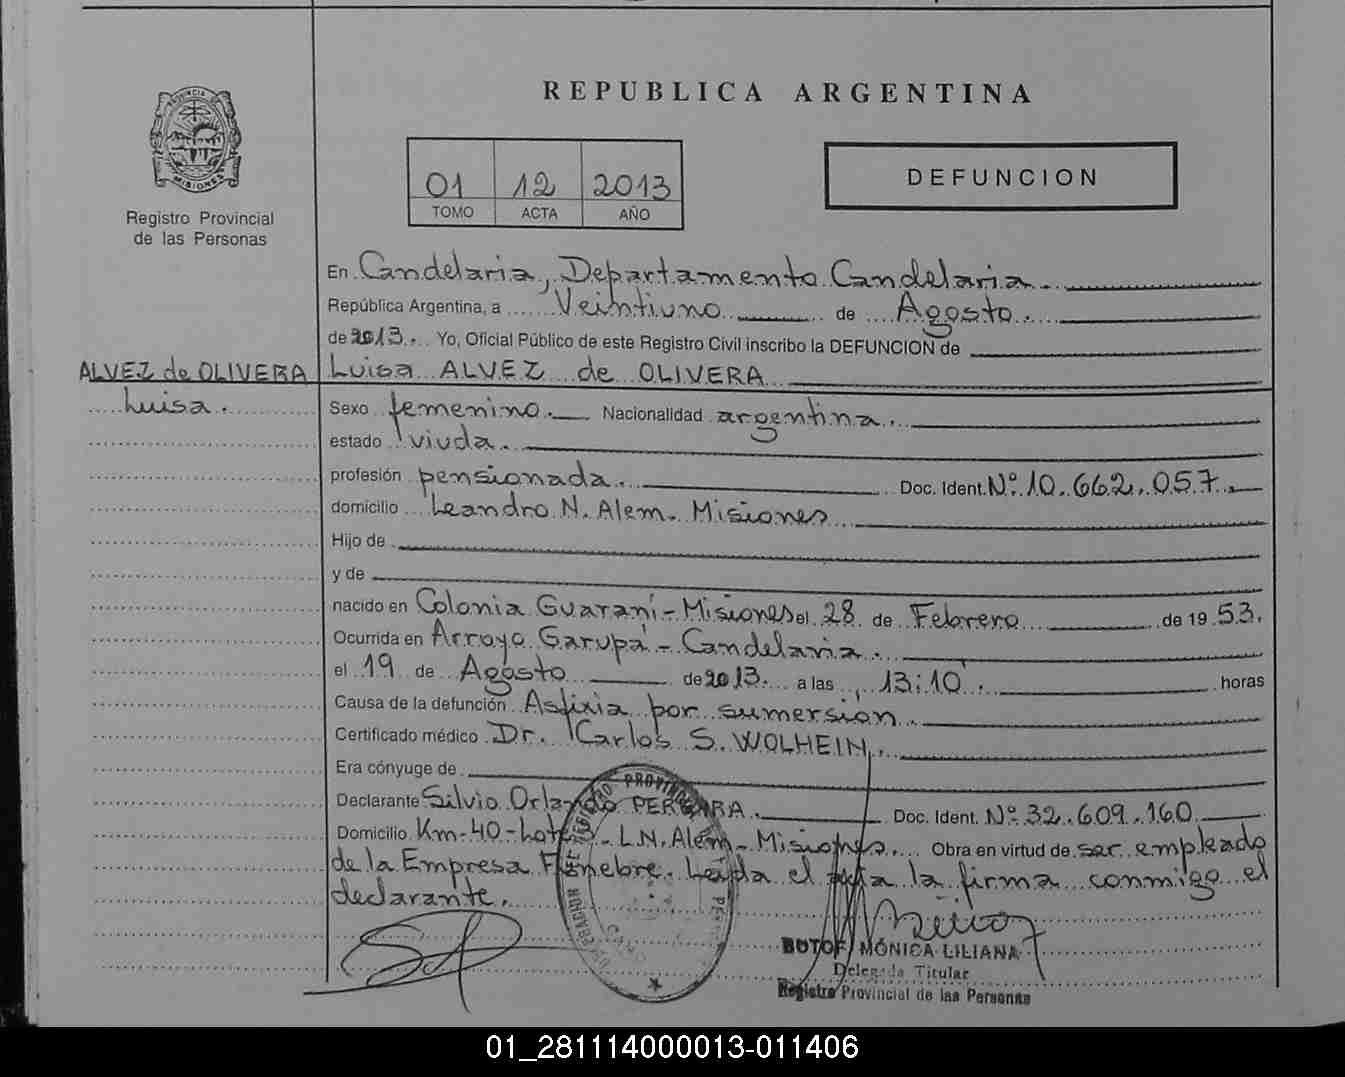 REPUBLICA ARGENTINA
PROVINCIA DE
MISIONES
Registro Provincial
de las Personas
01 12 2013
TOMO ACTA AÑO
DEFUNCION
En Candelaria, Departamento Candelaria.
República Argentina, a Veintiuno de Agosto.
de 2013. Yo, Oficial Público de este Registro Civil inscribo la DEFUNCION de
ALVEZ de OLIVERA
Luisa.
Luisa ALVEZ de OLIVERA
Sexo femenino. Nacionalidad argentina.
estado viuda.
profesión pensionada. Doc. Ident. Nº 10.662.057.
domicilio Leandro N. Alem. Misiones
Hijo de
y de
nacido en Colonia Guaraní - Misiones el 28 de Febrero de 19 53.
Ocurrida en Arroyo Garupá - Candelaria.
el 19 de Agosto de 2013. a las 13:10. horas
Causa de la defunción Asfixia por sumersión.
Certificado médico Dr. Carlos S. WOLHEIN.
Era cónyuge de
Declarante Silvio Orlando PEREARA. Doc. Ident. Nº 32.609.160
Domicilio Km-40- - L.N. Alem - Misiones. Obra en virtud de ser empleado
de la Empresa Fúnebre. Leída el acta la firma conmigo el
declarante.
BUTOF MÓNICA LILIANA
Delegada Titular
Registro Provincial de las Personas
01_281114000013-011406